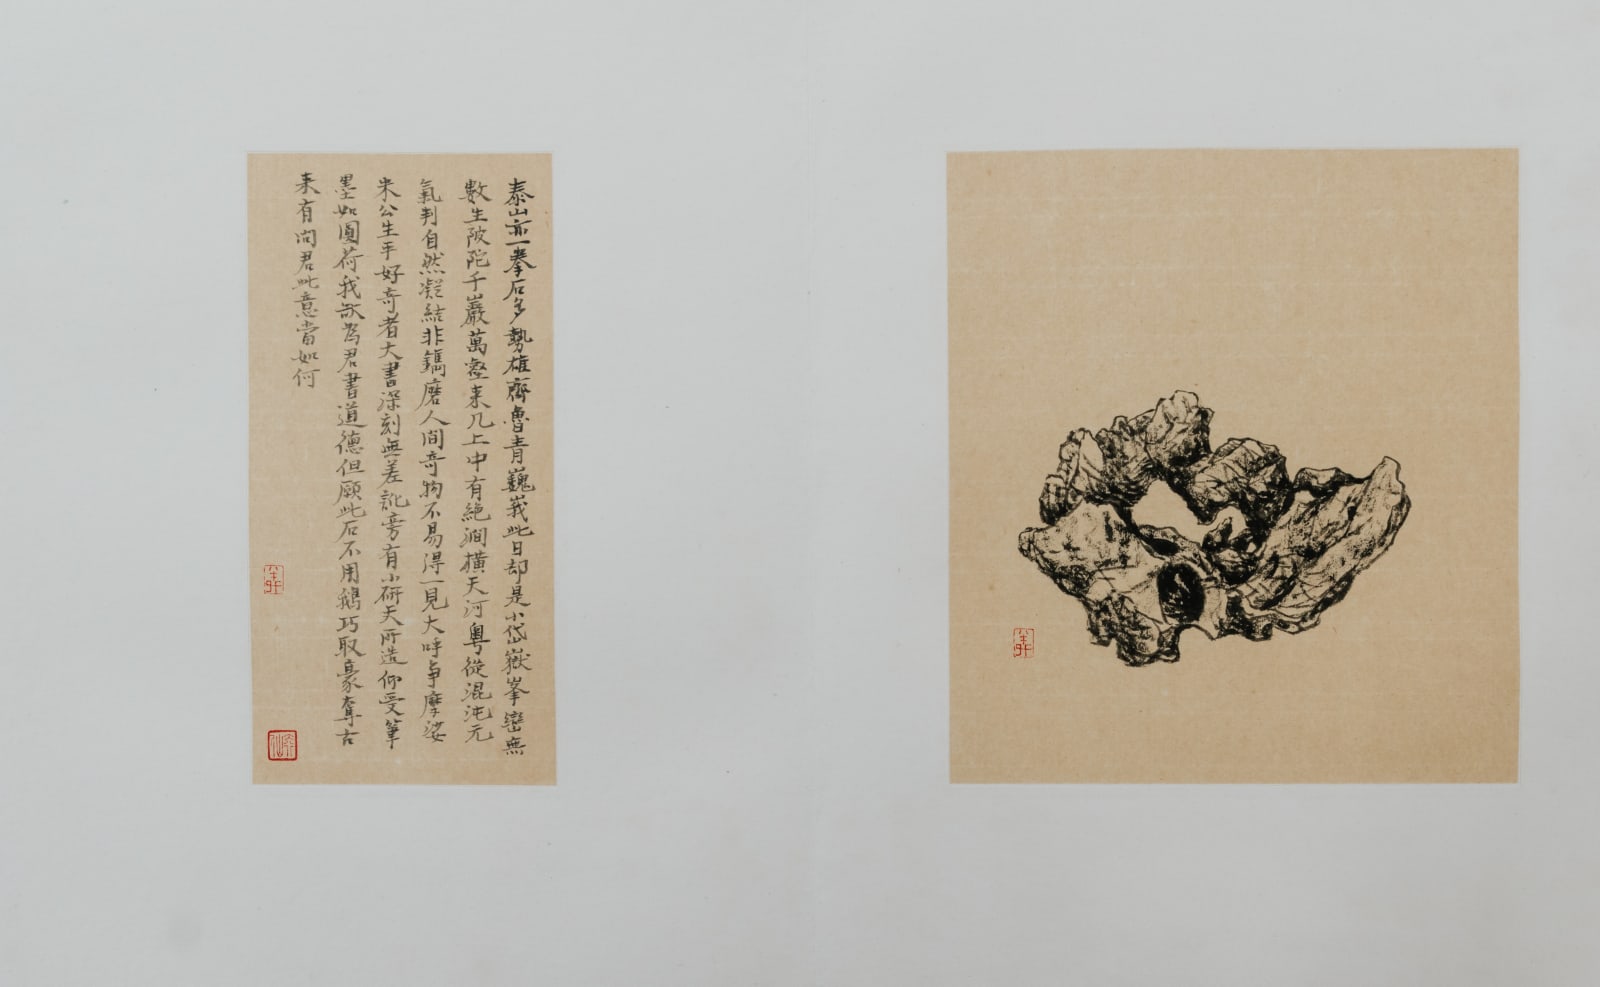 泰山亦一拳石多勢雄齊魯青巍峩此日却是小岱嶽峯巒無
數生陂陀千巖萬壑来几上中有絶澗橫天河粤從混沌元
氣判自然凝結非鐫磨人間奇物不易得一見大呼争摩娑
米公生平好奇者大書深刻無差訛旁有小研天所造仰受筆
墨如圓荷我欲為君書道德但願此石不用鵝巧取豪奪古
来有問君此意當如何